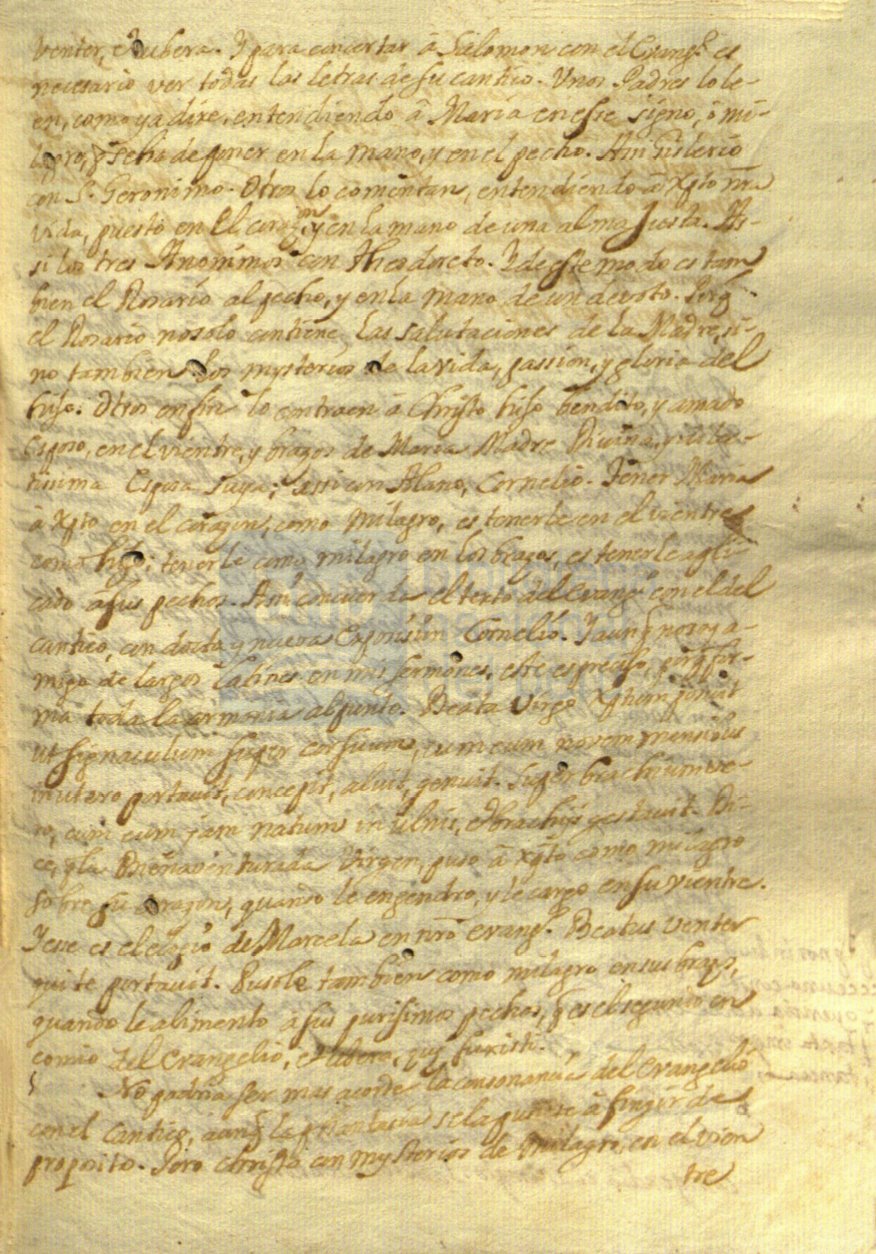 venter, et ubera. Y para concertar â Salomon con el Evang.º es
necesario ver todas las letras de su cantico. Unos Padres lo le-
en, como ya dire, entendiendo â Maria en este signo, ô mi-
lagro, q̃ se ha de poner en la mano, y en el pecho. Assi Gislerio
con S. Geronimo. Otros lo comentan, entendiendo â Xpto nr̃a
vida, puesto en el corazon, y en la mano de una alma justa. As-
si los tres Anonimos con Theodoreto. Y de este modo es tam
bien el Rosario al pecho, y en la mano de un devoto. Porq̃
el Rosario no solo contiene las salutaciones de la Madre, si-
no tambien los mysterios de la vida, passion, y gloria del
hijo. Otros en fin lo contraen â Christo hijo bendito, y amado
Esposo, en el vientre, y brazos de Maria Madre Divina, y dilec-
tissima Esposa suya; assi con Alano, Cornelio. Tener Maria
â Xpto en el corazon, como milagro, es tenerle en el vientre
como hijo; tenerle como milagro en los brazos, es tenerle apli-
cado â sus pechos. Assi concuerda el texto del Evang.º con el del
cantico, con docta y nueva Exposision Cornelio. Y aunq̃ no soy a-
migo de largos latines en mis sermones, este es preciso, porq̃ for-
ma toda la armonia al punto. Beata Virgo Xptum posuit
ut signaculum super cor suum, cum eum novem mensibus
in utero portavit, concepit, aluit, genuit. Super brachium ve-
ro, cum eum jam natum in ulnis, et brachijs gestavit. Di-
ce, q̃ la Bienaventurada Virgen, puso â Xpto como milagro
sobre su corazon, quando le engendro, y le cargo en su vientre.
Y ese es el elogio de Marcela en nr̃o Evang.º Beatus venter
qui te portavit. Pusole tambien como milagro en sus brazos,
quando le alimento â sus purisimos pechos, q̃ es el segundo en
comio del Evangelio, et ubera, quæ suxisti.
No podria ser mas acorde la consonancia del Evangelio
con el cantico, aunq̃ la phantasia se la pusiese â fingir de
proposito. Pero Christo con mysterios de milagro, en el vien
tre